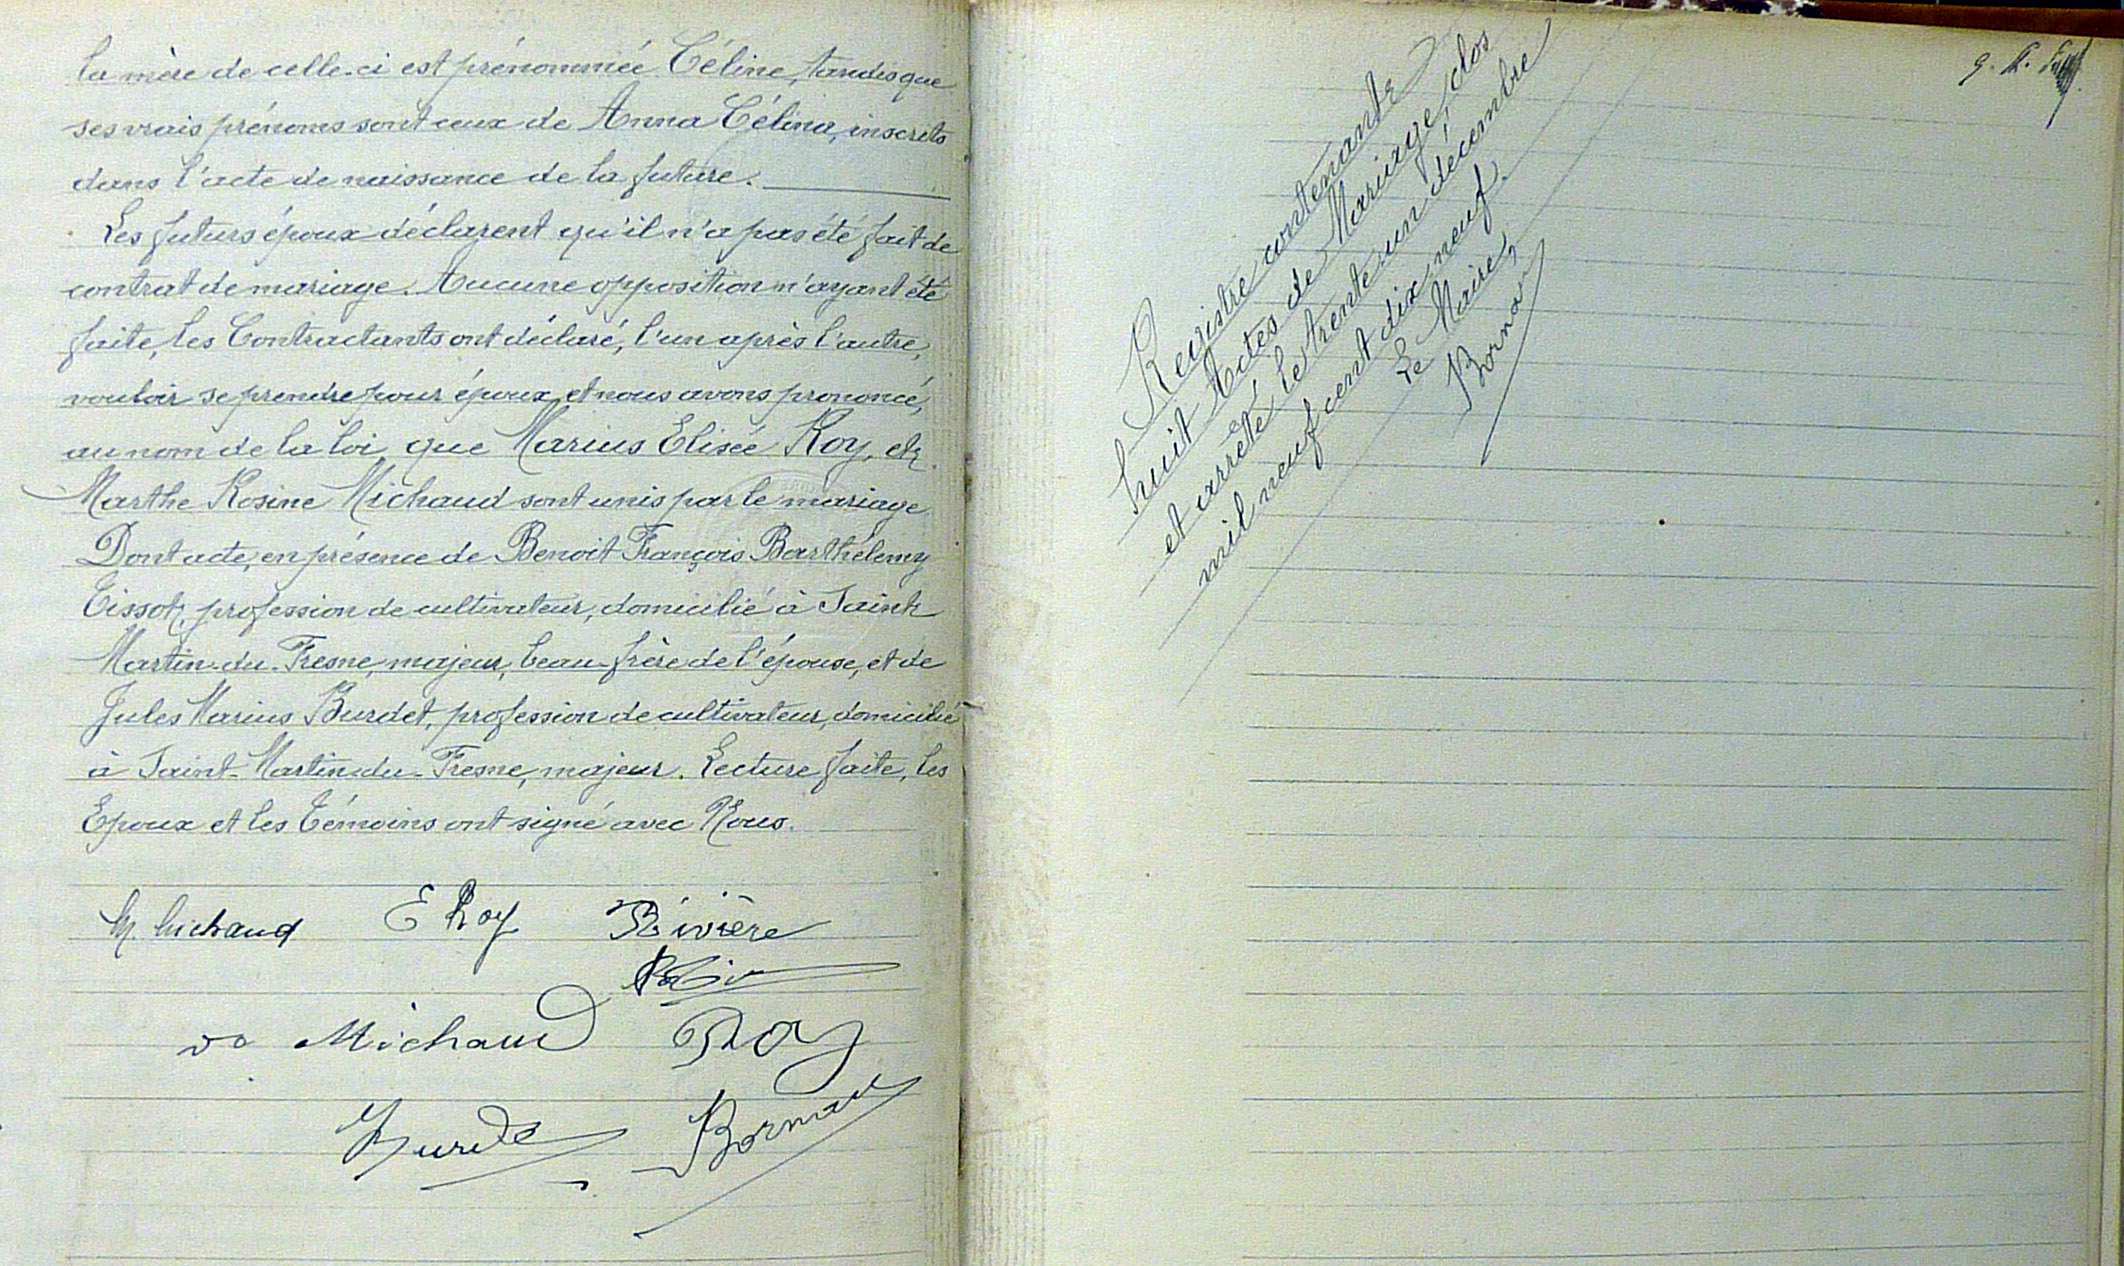 la mère de celle-ci est prénommée Céline, tandis que
ses vrais prénoms sont ceux de Anna Célina, inscrits
dans l'acte de naissance de la future.
Les futurs époux déclarent qu'il n'a pas été fait de
contrat de mariage. Aucune opposition n'ayant été
faite, les Contractants ont déclaré, l'un après l'autre,
vouloir se prendre pour époux, et nous avons prononcé,
au nom de la loi, que Marius Elisée Roy, et
Marthe Rosine Michaud sont unis par le mariage
Dont acte, en présence de Benoit François Barthélemy
Tissot, profession de cultivateur, domicilié à Saint
Martin-du-Fresne, majeur, beau-frère de l'épouse, et de
Jules Marius Burdet, profession de cultivateur, domicilié
à Saint-Martin-du-Fresne, majeur. Lecture faite, les
Epoux et les Témoins ont signé avec Nous.
M. Michaud E Roy Rivière
ve Michaud Roy
Burdet Bornar
Registre contenant
huit Actes de Mariage, clos
et arrêté le trente un décembre
mil neuf cent dix neuf.
Le Maire,
Bornar